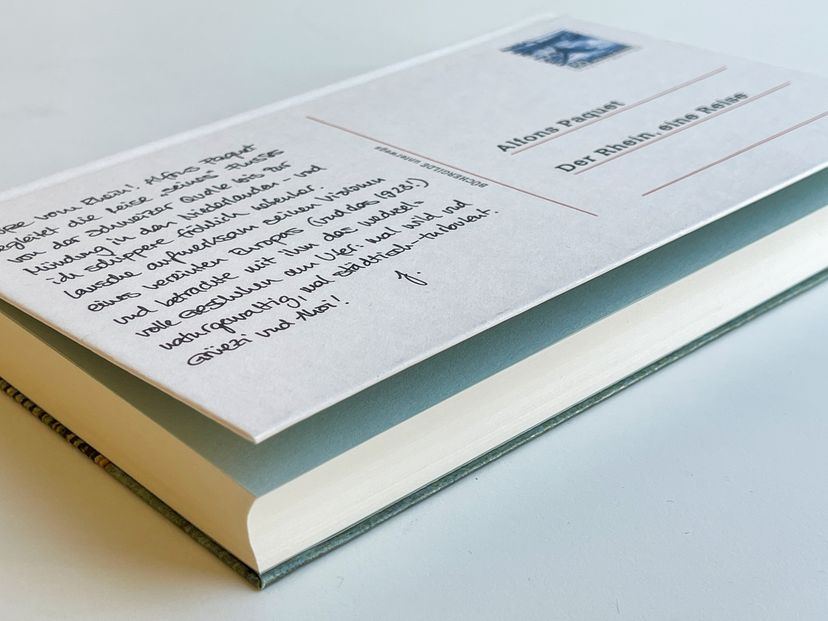 vom Rhein! Alfons Paquet
egleitet die Reise „seines“ Flusses
von der Schweizer Quelle bis zur
Mündung in den Niederlanden - und
ich schippere fröhlich nebenher,
lausche aufmerksam seinen Visionen
eines vereinten Europas (und das 1923!)
und betrachte mit ihm das wechsel-
volle Geschehen am Ufer: mal wild und
naturgewaltig, mal städtisch-turbulent.
Grüezi und Ahoi! J.
BÜCHERGILDE unterwegs
Alfons Paquet
Der Rhein, eine Reise